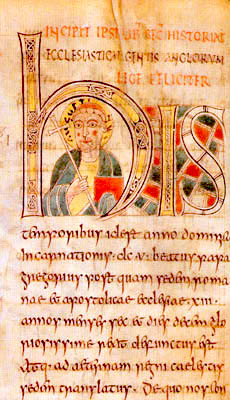 INCIPIT IPSIUS SEC HISTORIAE
ECCLESIASTICAE GENTIS ANGLORUM
LEGE FELICITER
his
temporibus id est anno domini
Incarnationis. dc. v. beatus papa
gregorius post quam sedem roma
nae & apostolicae ecclesiae. xiii.
annos menses sex & dies decem glo
riosissime rexit defunctus est
atq: ad aeternam regni caelestis
sedem translatus. De quo nos